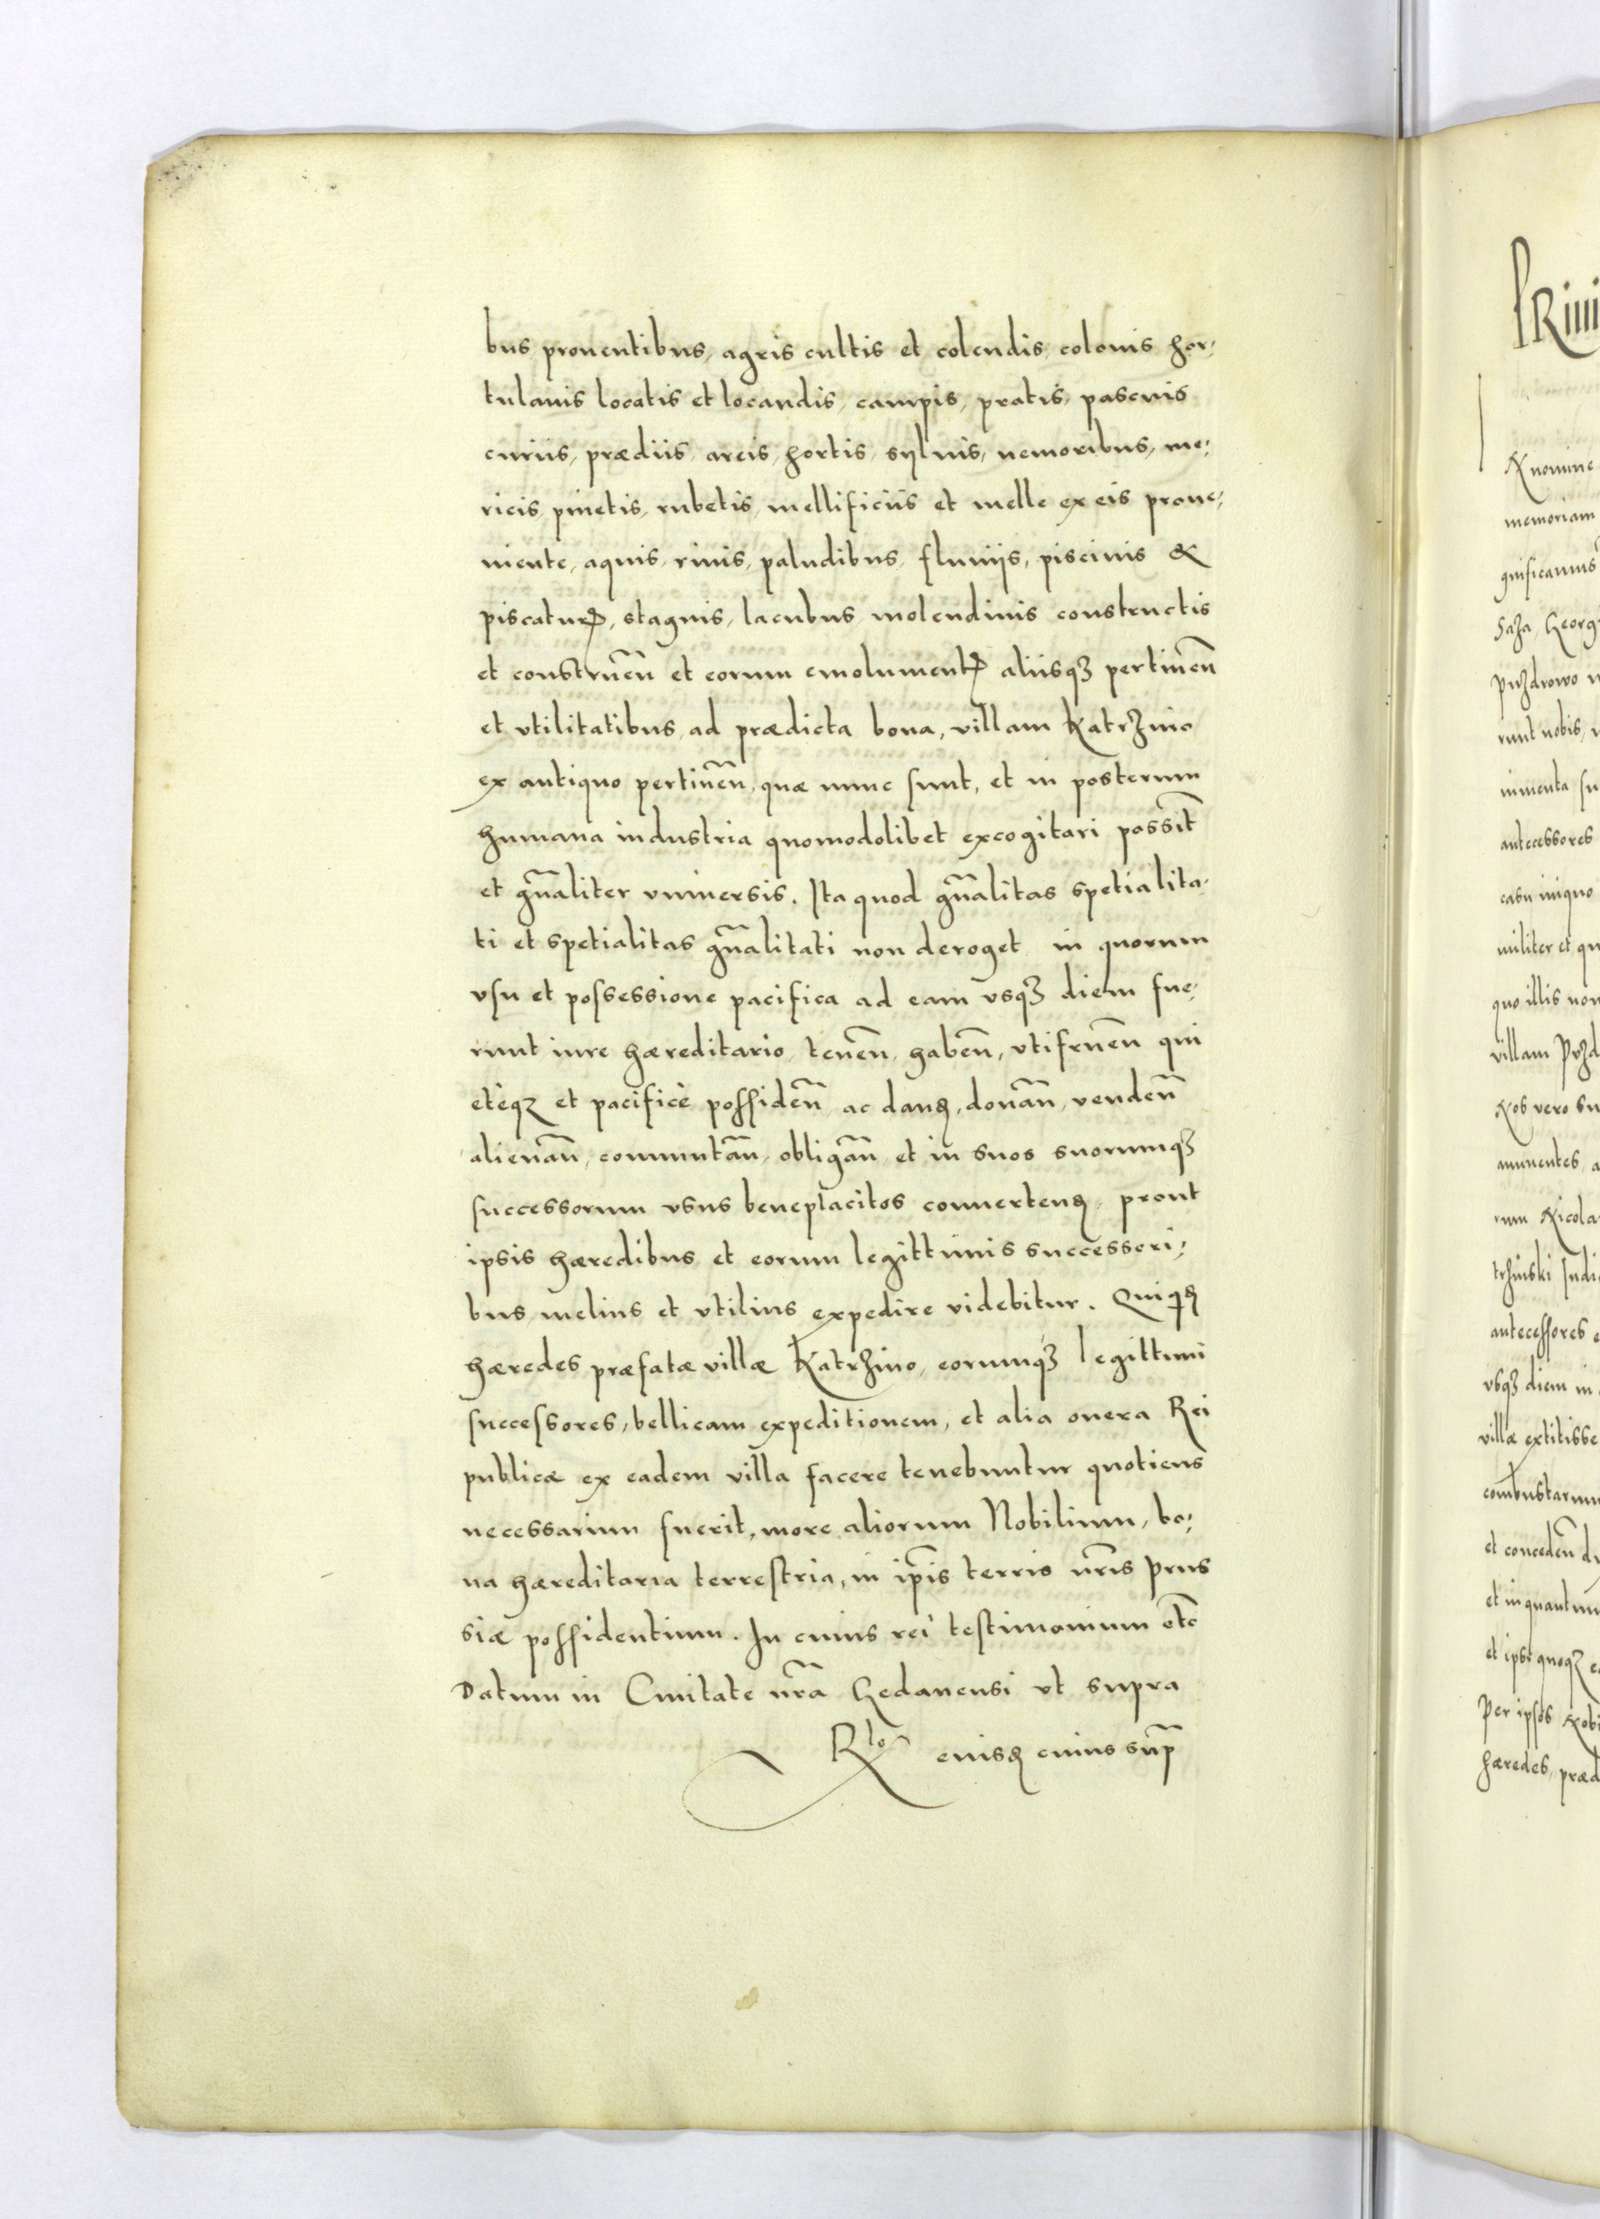 bus prouentibus, agris cultis et colendis, colonis hor,
tulanis locatis et locandis, campis, pratis, pascuis
curiis, prædiis, areis, hortis, syluis, nemoribus, me,
ricis, pinetis, rubetis, mellificiis et melle ex eis proue,
niente, aquis, riuis, paludibus, fluuijs, piscinis &
piscatur, stagnis, lacubus, molendinis constructis
et construen̄ et eorum emolument aliisqꝫ pertinen̄
et vtilitatibus, ad prædicta bona, villam Katrzino
ex antiquo pertinen̄, quæ nunc sunt, et in posterum
humana industria quomodolibet excogitari possin̄t
et gn̄aliter vniuersis. Ita quod gn̄alitas spetialita,
ti et spetialitas gn̄alitati non deroget in quorum
vsu et possessione pacifica ad eam vsqꝫ diem fue,
runt iure hæreditario, tenen̄, haben̄, vtifruen̄ qui
etèqꝫ et pacificè possiden̄ ac dan, donan̄, venden̄
alienan̄, commutan̄, obligan̄ et in suos suorumqꝫ
successorum vsus beneplacitos conuerten, prout
ipsis hæredibus et eorum legittimis successori,
bus melius et vtilius expedire videbitur. Qui
hæredes præfatæ villæ Katrzino, eorumqꝫ legittimi
successores, bellicam expeditionem, et alia onera Rei
publicæ ex eadem villa facere tenebuntur quotiens
necessarium fuerit, more aliorum Nobilium, bo,
na hæreditaria terrestria, in ip̄is terris nr̄is Prus
siæ possidentium. In cuius rei testimonium etc̄
Datum in Ciuitate nr̄a Gedanensi vt supra
Rlo cuius sup̄
PRiui
N nomine
memoriam
gnificamus
Saza, Georg
Puzdrowo
runt nobis,
antecessores
casu iniquo
militer et qu
quo illis non
villam Puzd
Nos vero
rum Nicola
trzinski Judi
antecessores
vsqꝫ diem in
villæ extitisse
combustarum
et conceden̄
et inquantum
et ipsi quoqꝫ
Per ipsos Nobi
hæredes, præd